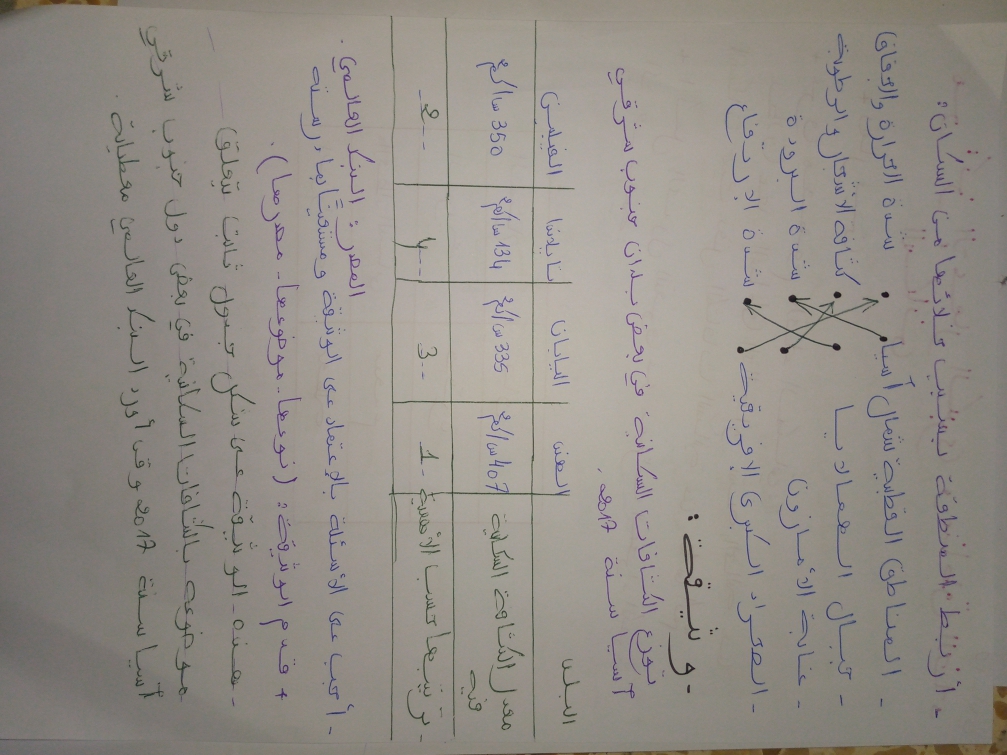 - أربط المنطقة بسبب خلائها من السكان:
- المناطق القطبية شمال آسيا
شدة الحرارة والجفاف
- جبال الهملايا
كثافة الأشجار والرطوبة
- غابة الأمازون
شدة البرودة
- الصحراء الكبرى الإفريقية
شدة الإرتفاع
- وثيقة:
توزع الكثافات السكانية في بعض بلدان جنوب شرقي
آسيا سنة 2017.
البلد الهند اليابان تايلندا الفيليبين
معدل الكثافة السكانية 407 س/كم² 335 س/كم² 134 س/كم² 350 س/كم²
فيه
- رتبتها حسب الأهمية - 1 - - 3 - - 4 - - 2 -
المصدر: البنك العالمي.
- أجب على الأسئلة بالإعتماد على الوثيقة ومستعينا بما درسته
+ قدم الوثيقة: (نوعها - موضوعها - مصدرها).
- هذه الوثيقة على شكل جدول ثابت تتعلق
موضوعه بالكثافات السكانية في بعض دول جنوب شرقي
آسيا سنة 2017 وقد أورد البنك العالمي معطياته.